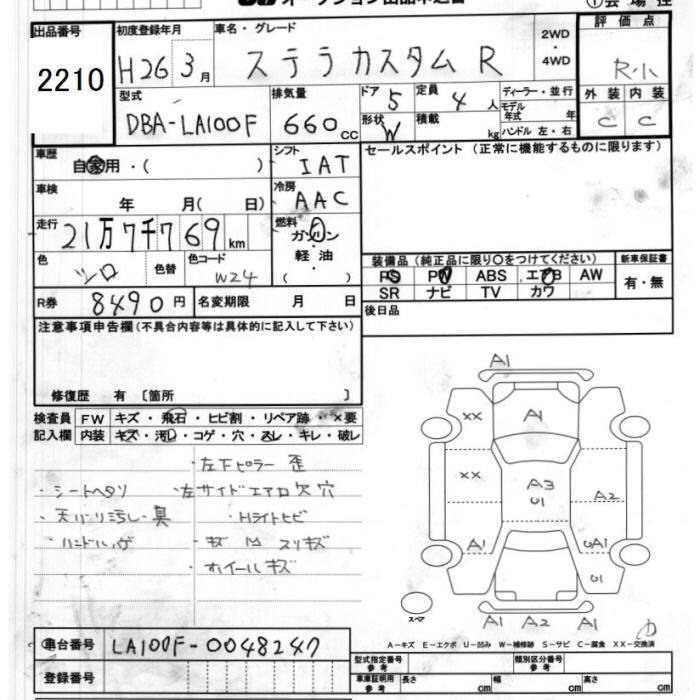 オークション出品申込書
①会場控
出品番号 2210
初度登録年月 H26 3月
車名・グレード ステラカスタム R
2WD・4WD
評価点 R小
型式 DBA-LA100F
排気量 660cc
ドア 5
定員 4人
形状 W
積載 kg
ディーラー・並行
モデル年式 年
ハンドル 左・右
外装 C
内装 C
車歴 自家用・( )
シフト IAT
セールスポイント (正常に機能するものに限ります)
車検 年 月( 日)
冷房 AAC
走行 21万7千769km
燃料 ガソリン・軽油 ( )
色 シロ
色替
色コード W24
装備品 (純正品に限り○をつけてください)
新車保証書
PS PW ABS エアB AW
SR ナビ TV カワ
有・無
R券 8490円
名変期限 月 日
後日品
注意事項申告欄 (不具合内容等は具体的に記入して下さい)
修復歴 有〔箇所 〕
検査員記入欄
FW キズ・飛石・ヒビ割・リペア跡・×要
内装 キズ・汚れ・コゲ・穴・スレ・キレ・破レ
・左下ピラー 歪
・シートヘタリ ・左サイドエアロ欠穴
・天バリ汚レ・臭 ・Hライトヒビ
・ハンドルハゲ ・キズ 凹 スリキズ
・ホイールキズ
A1
XX A1
XX A3 U1 A2
A1 UA1
U1
スペア A1 A2 A1
A−キズ E−エクボ U−凹み W−補修跡 S−サビ C−腐食 XX−交換済
車台番号 LA100F-0048247
登録番号
型式指定番号 参考
類別区分番号 参考
車庫証明用 参考 長さ cm 幅 cm 高さ cm